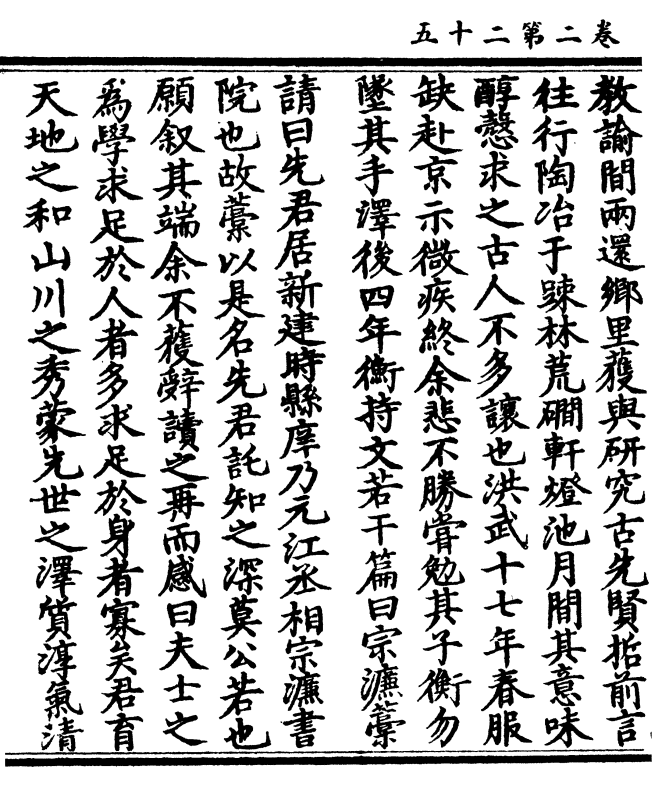 卷二第二十五
教諭間兩還鄉里獲與硏究古先賢哲前言
往行陶冶于踈林荒磵軒燈池月間其意味
醇愨求之古人不多讓也洪武十七年春服
缺赴京示微疾終余悲不勝嘗勉其子衡勿
墜其手澤後四年衡持文若干篇曰宗濂藳
請曰先君居新建時縣庠乃元江丞相宗濂書
院也故藳以是名先君託知之深莫公若也
願叙其端余不獲辭讀之再而感曰夫士之
爲學求足於人者多求足於身者寡矣君育
天地之和山川之秀蒙先世之澤質淳氣清